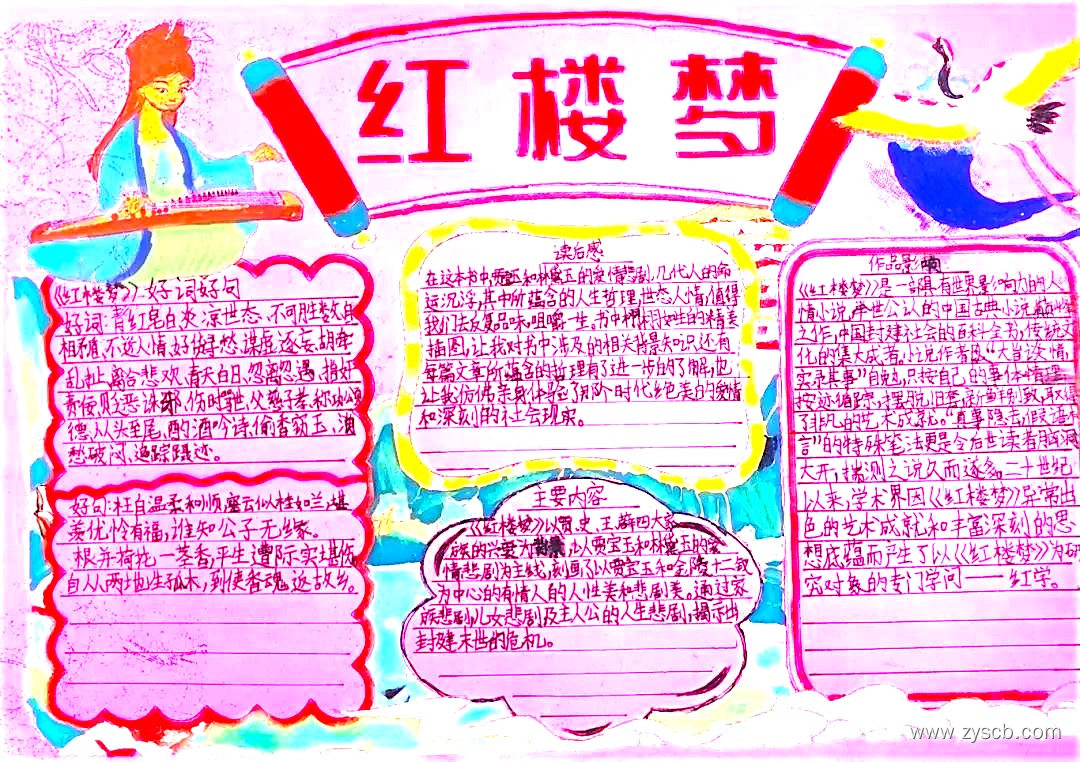 红楼梦
《红楼梦》好词好句
好词:青红皂白、炎凉世态、不可胜数、自
相矛盾、不近人情、好
乱扯、离合悲欢、青天白日、忽离忽遇、
责佞、贬恶诛邪、伤时
德、从头至尾、酌酒吟诗、偷香窃玉、
愁破闷、追踪蹑迹。
好句:枉自温柔和顺,空云似桂如兰,堪
羡优怜有福,谁知公子无缘。
根并荷花一茎香,平生遭际实堪伤,
自从两地生孤木,到使香魂返故乡。
读后感
在这本书中,贾宝玉和林黛玉的爱情悲剧,几代人的命
运沉浮,其中所蕴含的人生哲理,世态人情,值得
我们去反复品味,咀嚼一生。书中栩栩如生的精美
插图,让我对书中涉及的相关背景知识还有
每篇文章所蕴含的哲理有了进一步的了解,也
让我仿佛亲身体验了那个时代绝美的爱情
和深刻的社会现实。
主要内容
《红楼梦》以贾、史、王、薛四大家
族的兴衰为背景,以贾宝玉和林黛玉的爱
情悲剧为主线,刻画了以贾宝玉和金陵十二钗
为中心的有情人的人性美和悲剧美。通过家
族悲剧,儿女悲剧及主人公的人生悲剧,揭示出
封建末世的危机。
作品影响
《红楼梦》是一部具有世界影响力的人
情小说,举世公认的中国古典小说巅峰
之作,中国封建社会的百科全书,传统文
化的集大成者。小说作者以“大旨谈情,
实录其事”自勉,只按自己的事体情理,
按迹循踪,摆脱旧套,新鲜别致,取得
了非凡的艺术成就。“真事隐去,假语
言”的特殊笔法更是令后世读者脑洞
大开,揣测之说久而遂多。二十世纪
以来,学术界因《红楼梦》异常出
色的艺术成就和丰富深刻的思
想底蕴而产生了以《红楼梦》为研
究对象的专门学问——红学。
www.zyscb.com